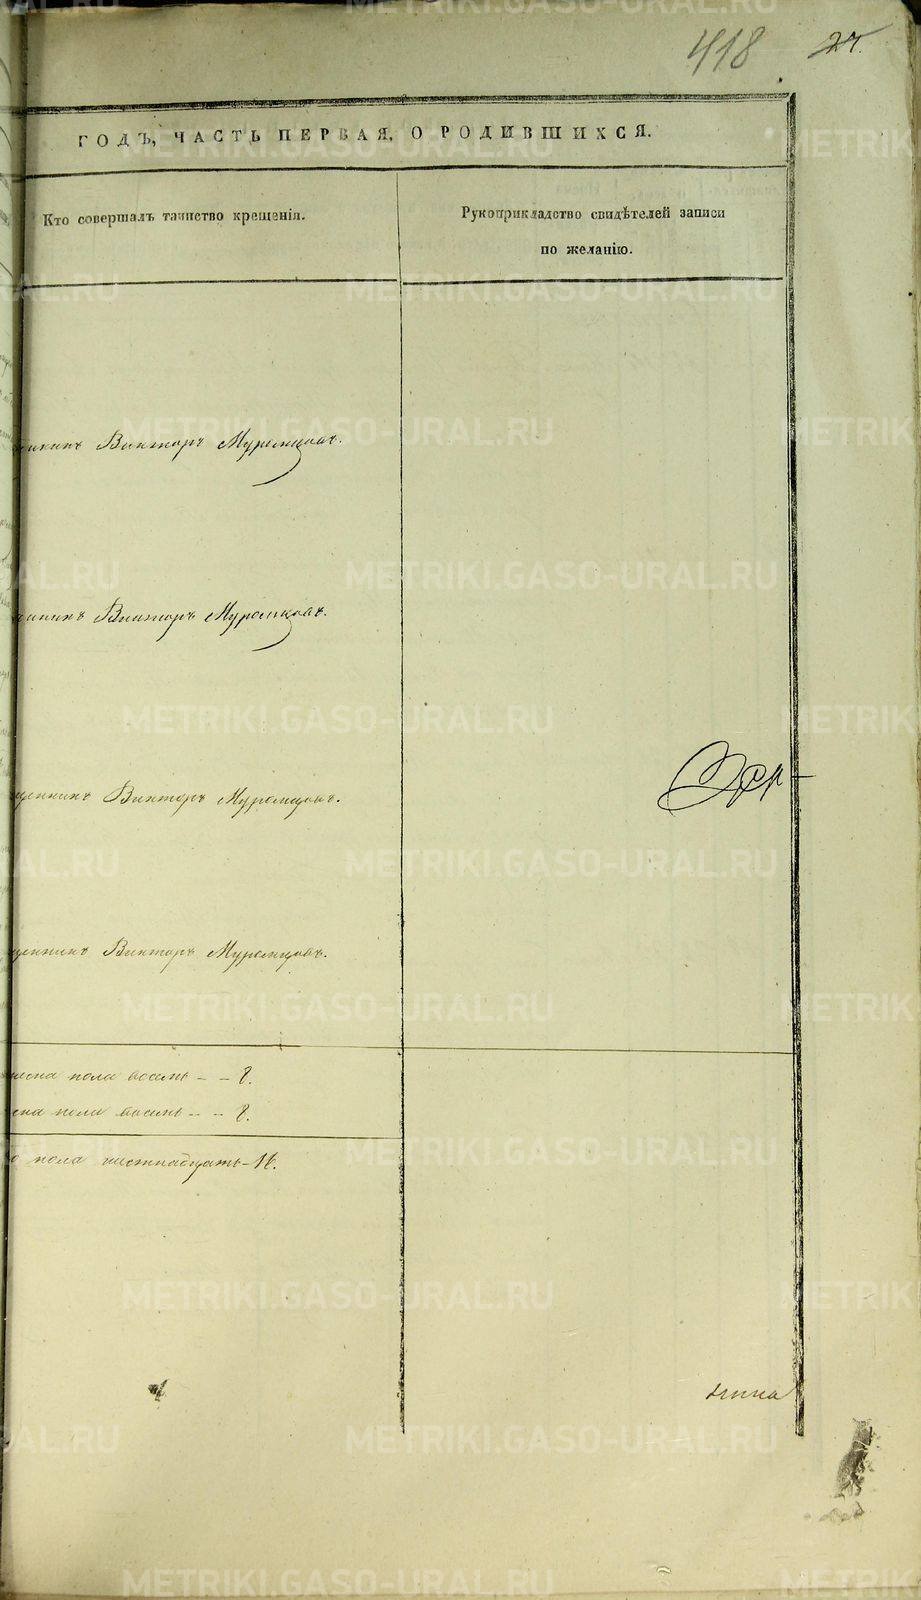 418 27.
ГОДЪ, ЧАСТЬ ПЕРВАЯ, О РОДИВШИХСЯ.
Кто совершалъ таинство крещенія.
Рукоприкладство свидѣтелей записи
по желанію.
Викторъ Муромцовъ.
Викторъ Муромцовъ.
щенникъ Викторъ Муромцовъ.
щенникъ Викторъ Муромцовъ.
пола восемь - - 8.
пола восемь - - 8.
о пола шестнадцать - 16.
METRIKI.GASO-URAL.RU